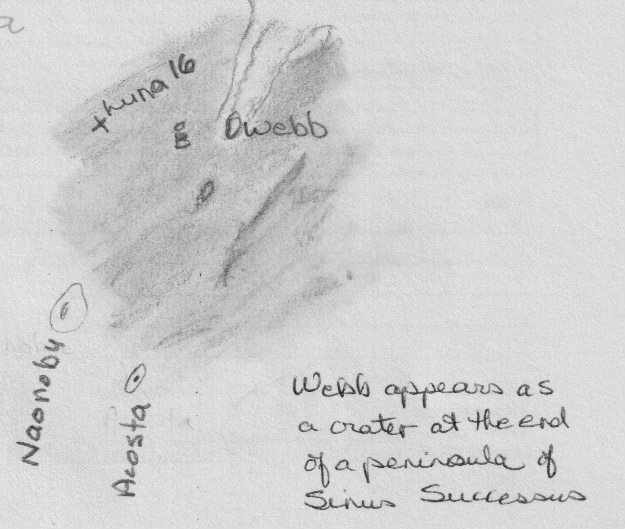 a
x Luna 16
Webb
Naonobu
Acosta
Webb appears as
a crater at the end
of a peninsula of
Sinus Successus